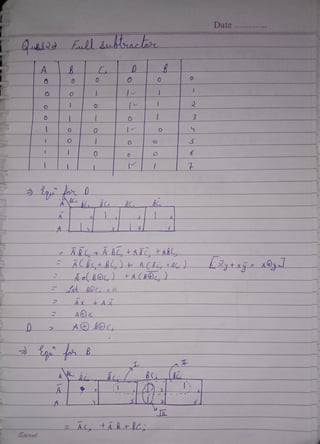 Date ............
Full Subtractor
A B C₁ D B
0 0 0 0 0 0
0 0 1 1 1 1
0 1 0 1 1 2
0 1 1 0 1 3
1 0 0 1 0 4
1 0 1 0 0 5
1 1 0 0 0 6
1 1 1 1 1 7
⇒ Equⁿ for D
= A̅B̅C₁ + A̅BC̅₁ + AB̅C̅₁ + ABC₁
= A̅(B̅C₁ + BC̅₁) + A(B̅C̅₁ + BC₁) [x̅y + xy̅ = x⊕y]
= A̅(B⊕C₁) + A(B⊕C₁)
= Let B⊕C₁ = x
= A̅x + Ax̅
= A⊕x
D = A⊕B⊕C₁
⇒ Equⁿ for B
= A̅C₁ + A̅B + BC₁